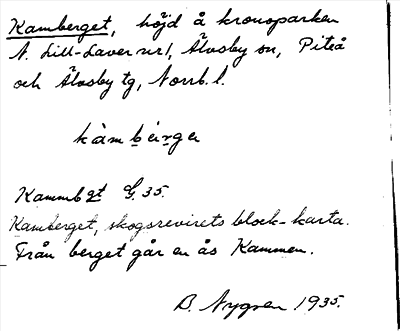 Kamberget, höjd å kronoparken
N. Lill-Laver nr 1, Älvsby sn, Piteå
och Älvsby tg, Norrb. l.
kàmbèrge
Kammbgt G. 35.
Kamberget, skogsrevirets block-karta.
Från berget går en ås Kammen.
B. Nygren 1935.